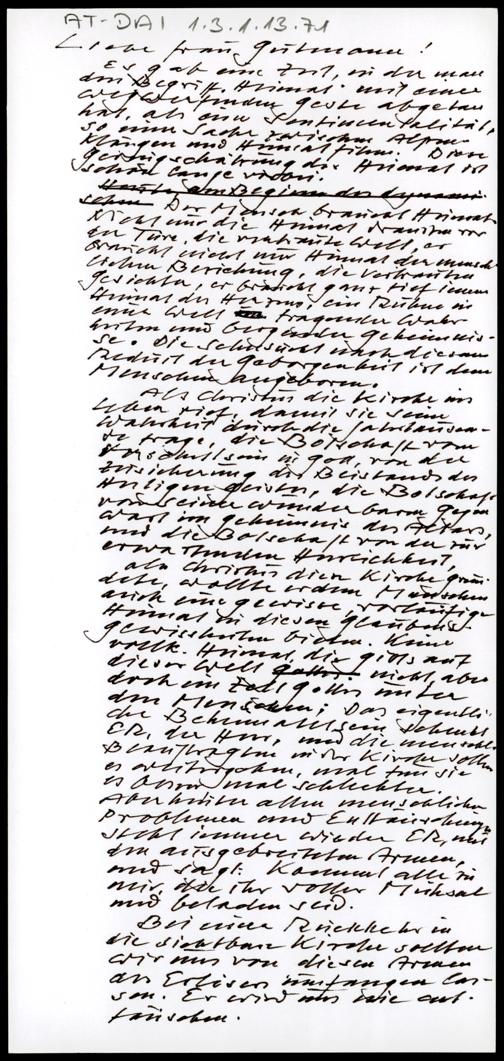 AT-DAI 1.3.1.13.71
Liebe Frau Gutmann!
Es gab eine Zeit, in der man
den Begriff, Heimat mit einer
wegwerfenden Geste abgetan
hat, als eine Sentimentalität,
so eine Sache zwischen Alpen-
klängen und Heimatfilm. Diese
Geringschätzung der Heimat ist
schon lange vorbei.
Heute am Beginn der dynami-
schen Der Mensch braucht Heimat.
Nicht nur die Heimat draußen vor
der Türe, die vertraute Welt, er
braucht nicht nur Heimat der mensch-
lichen Beziehung, die vertrauten
Gesichter, er braucht ganz tief innen
Heimat des Herzens, ein Ruhen in
einer Welt tragender Wahr-
heiten und bergender Geheimnis-
se. Die Sehnsucht nach diesem
Redui der Geborgenheit ist dem
Menschen angeboren.
Als Christus die Kirche ins
Leben rief, damit sie seine
Wahrheit durch die Jahrtausen-
de trage, die Botschaft vom
in Gott, von der
Zusicherung des Beistands des
Heiligen Geistes, die Botschaft
von seiner wunderbaren Gegen-
wart im Geheimnis des Altars,
und die Botschaft von der zu
erwartenden Herrlichkeit,
als Christus diese Kirche grün-
dete, wollte er dem Menschen
auch eine gewisse, vorläufige
Heimat in diesen Glaubens-
gewissheiten bieten. Keine
vollk. Heimat, die gibts auf
dieser Welt nicht, aber
doch ein Zelt Gottes unter
den Menschen; Das eigentli-
che Beheimatetsein schenkt
ER, der Herr, und die menschl.
Beauftragten in der Kirche sollen
es weitergeben, mal tun sie
es besser mal schlechter.
Aber hinter allen menschlichen
Problemen und Enttäuschungen
steht immer wieder ER, mit
den ausgebreiteten Armen,
und sagt: Kommet alle zu
mir, die ihr voller Mühsal
und beladen seid.
Bei einer Rückkehr in
die sichtbare Kirche sollten
wir uns von diesen Armen
des Erlösers umfangen las-
sen. Er wird uns nie ent-
täuschen.